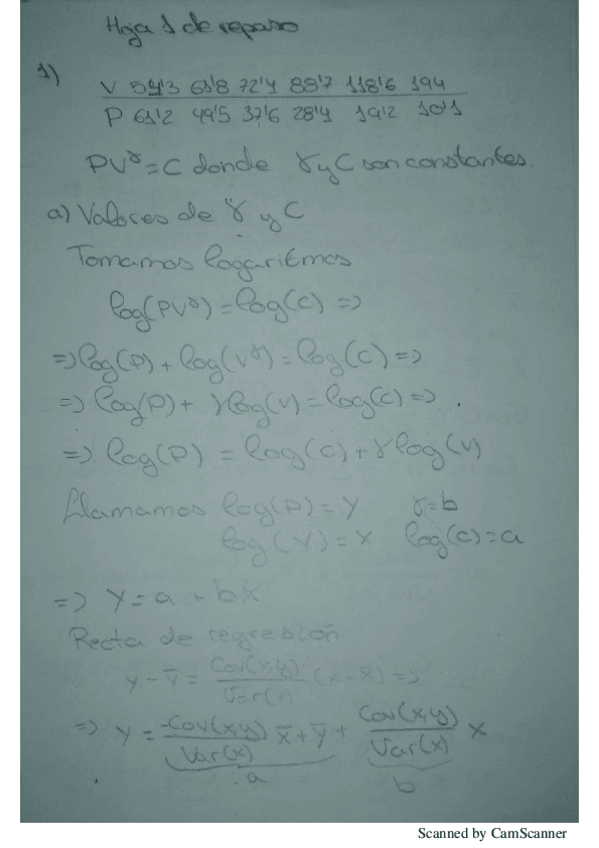 Hoja 1 de repaso
1)
V 54'3 61'8 72'4 88'7 118'6 194
P 61'2 49'5 37'6 28'4 19'2 10'1
PV^γ = C donde γ y C son constantes.
a) Valores de γ y C
Tomamos logaritmos
log(PV^γ) = log(C) =>
=> log(P) + log(V^γ) = log(C) =>
=> log(P) + γ log(V) = log(C) => .
=> log(P) = log(C) + γ log(V)
Llamamos log(P) = Y γ = b
log(V) = X log(C) = a
=> Y = a + bX
Recta de regresión
y - ȳ = Cov(x,y) / Var(x) (x - x̄) =>
=> y = -Cov(x,y) / Var(x) x̄ + ȳ + Cov(x,y) / Var(x) x
a b
Scanned by CamScanner